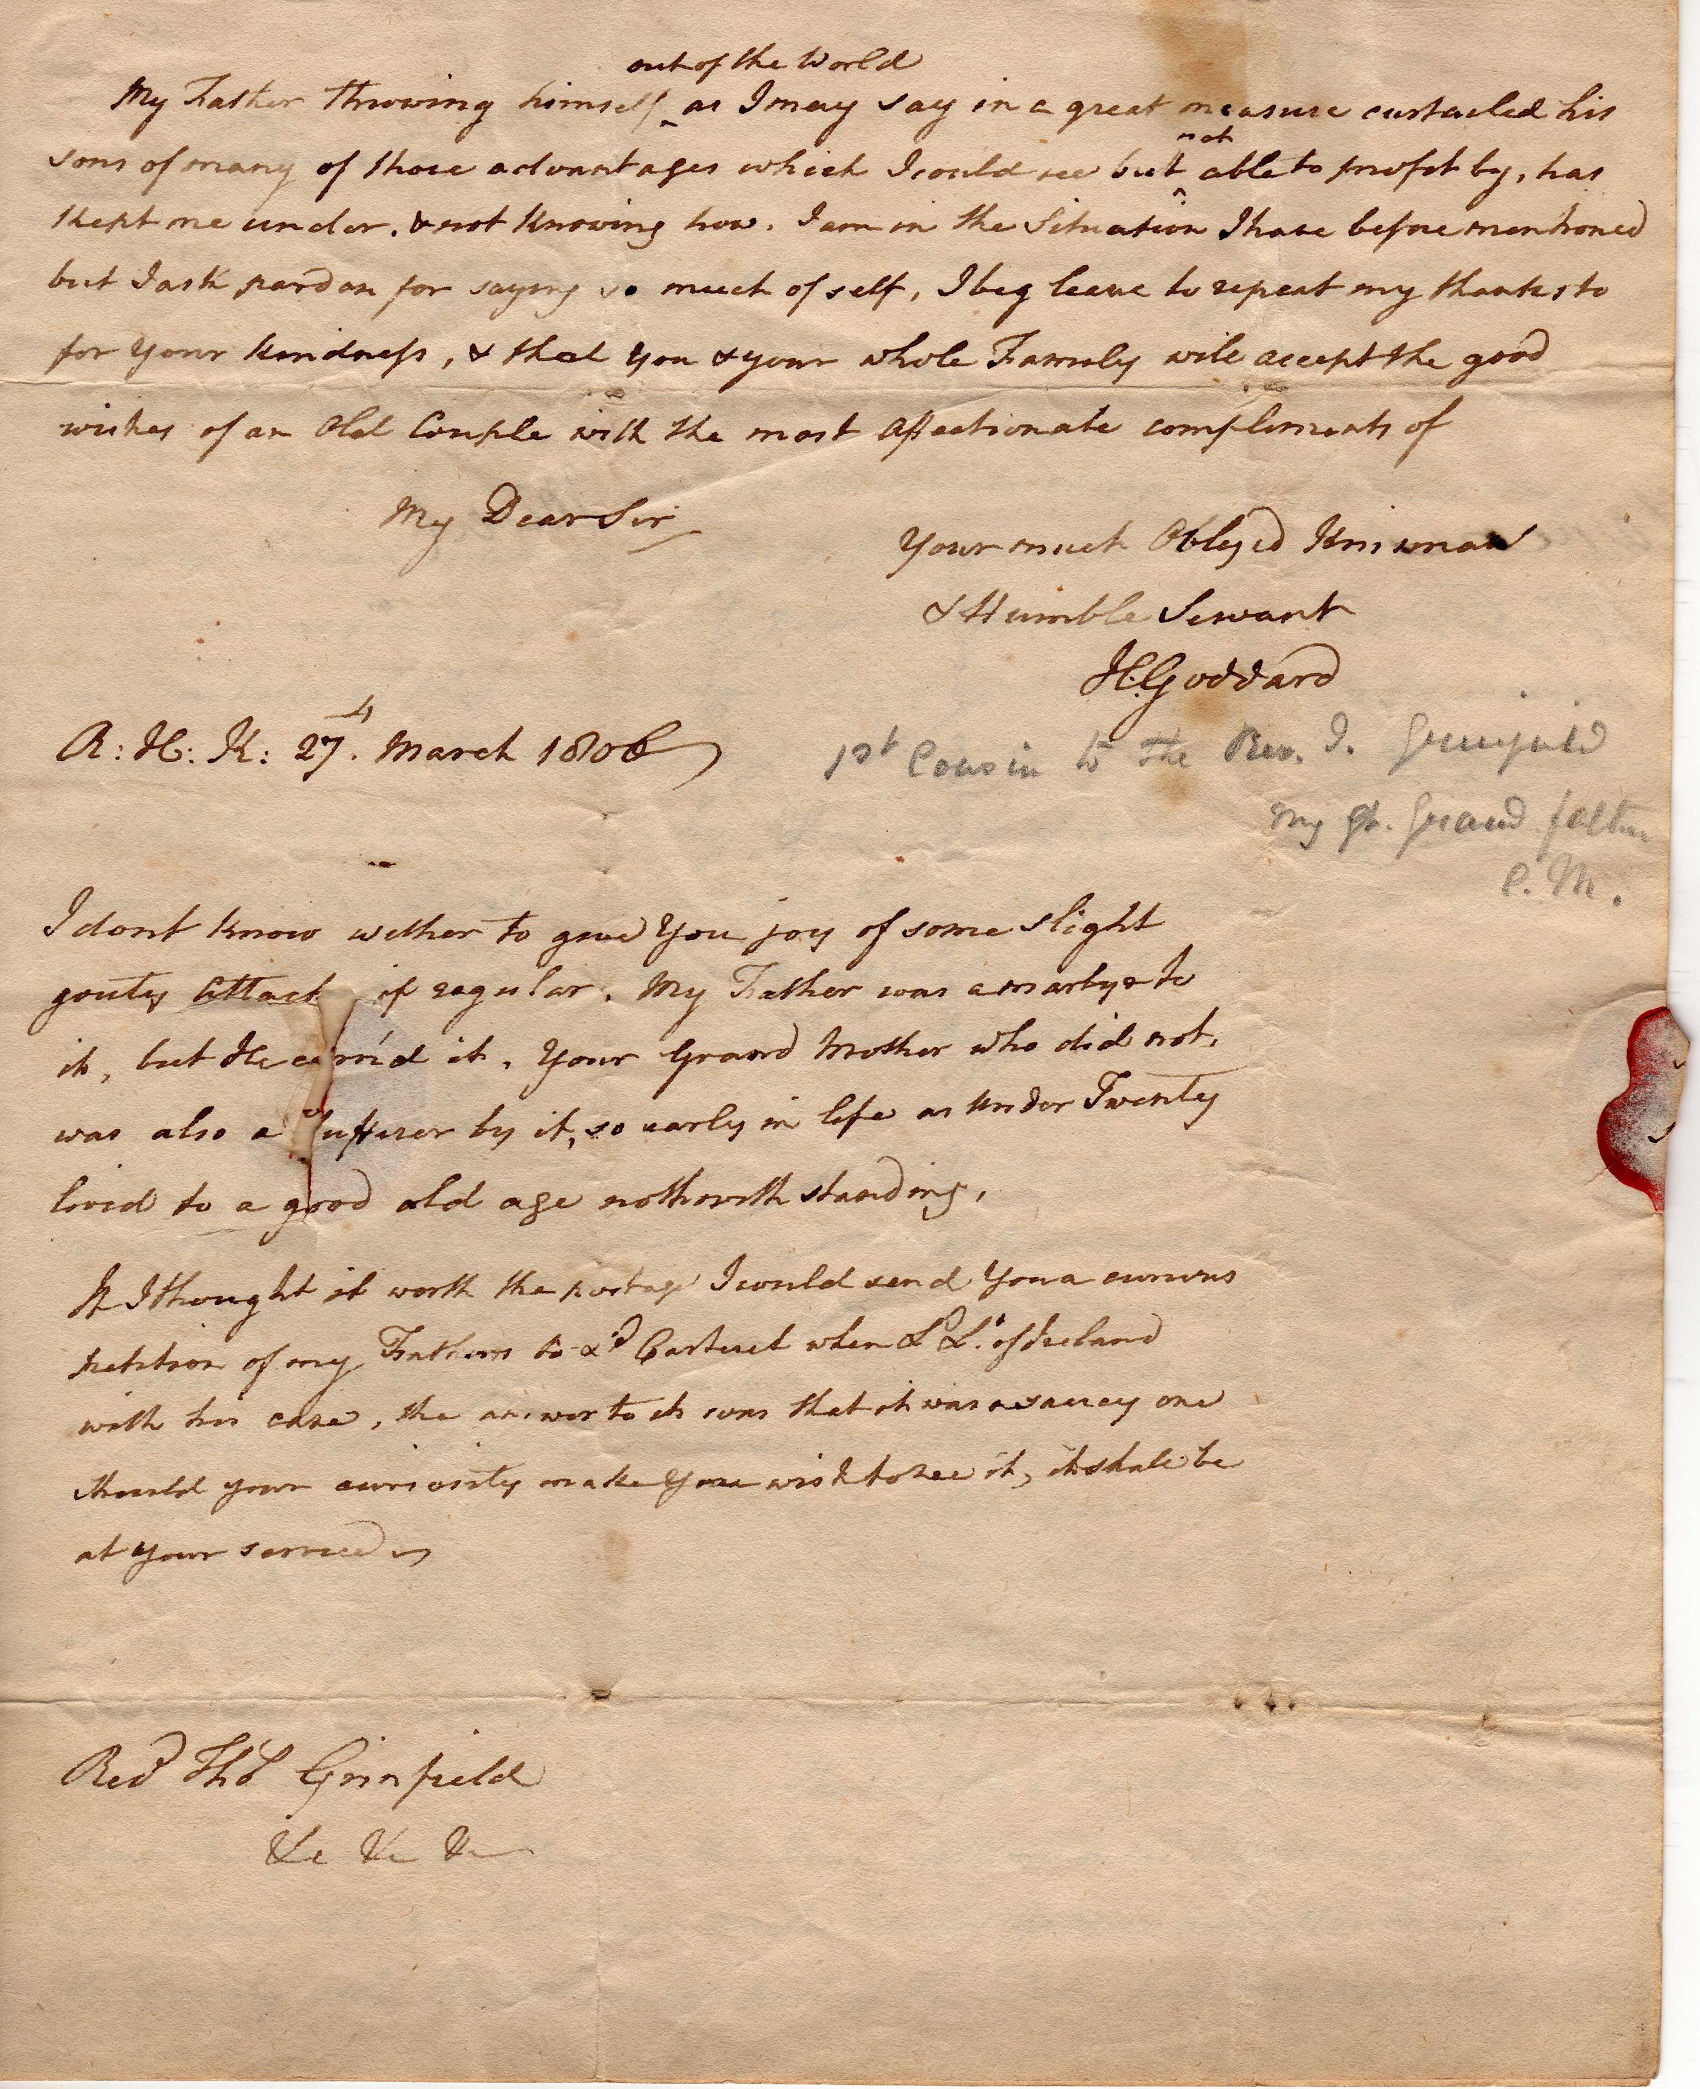 out of the World
My Father throwing himself ^ as I may say in a great measure curtailed his
not
sons of many of those advantages which I could see but ^ able to profit by, has
kept me under. & not knowing how. I am in the Situation I have before mentioned
but I ask pardon for saying so much of self, I beg leave to repeat my thanks to
for your kindness, & that you & your whole Family will accept the good
wishes of an Old Couple with the most affectionate compliments of
My Dear Sir
Your much Obliged Kinsman
& Humble Servant
H:Goddard
A: H: K: 27th. March 1806
1st Cousin to the Rev. T. Grinfield
my gt. Grand father
C. M.
I dont know wether to give You joy of some slight
gouty attack if regular. My Father was a martyr to
it, but He carri'd it. Your Grand Mother who did not.
was also a sufferer by it, so early in life as under Twenty
livd to a good old age nothwithstanding.
If I thought it worth the postage I would send You a curious
petition of my Fathers to Ld Carteret when Ld Lt. of Ireland
with his case, the answer to it was that it was a saucy one
should your curiosity make You wish to see it, it shall be
at your service
Revd Thos Grinfield
&c &c &c